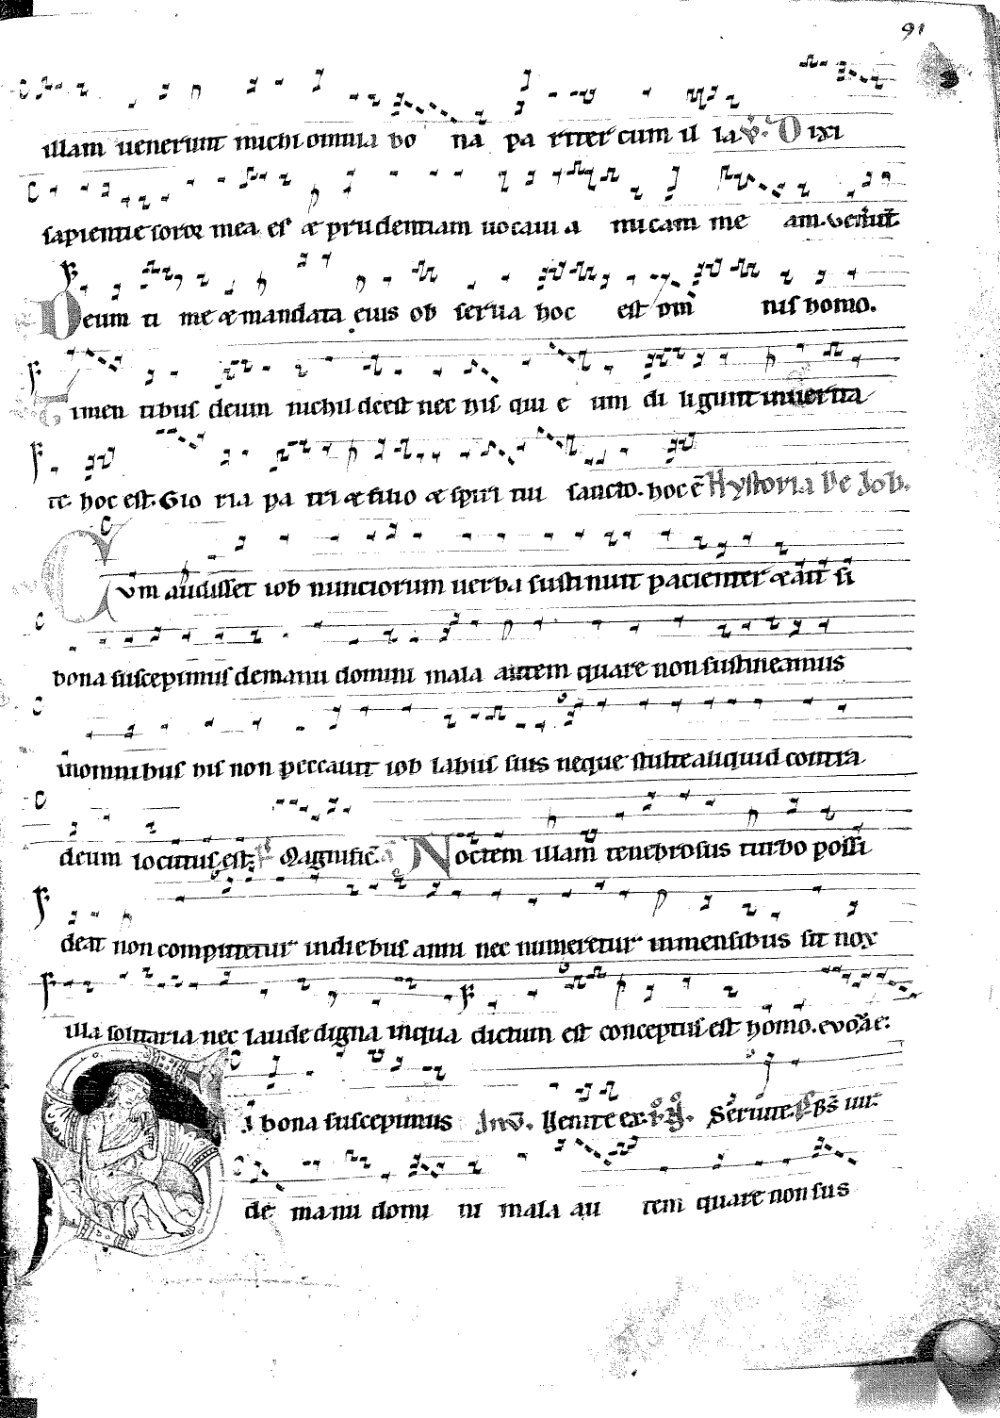 91
illam uenerunt michi omnia bo na pa riter cum il la. V. Dixi
sapientie soror mea es & prudentiam uocaui a micam me am. Venerūt.
Deum ti me & mandata eius ob serua hoc est om̄ nis homo.
Timen tibus deum nichil deest nec his qui e um di ligunt in uerita
te. hoc est. Glo ria pa tri & filio & spiri tui sancto. hoc ē Hystoria De Job.
Cum audisset iob nunciorum uerba sustinuit pacienter & ait si
bona suscepimus de manu domini mala autem quare non sustineamus
in omnibus his non peccauit iob labiis suis neque stulte aliquid contra
deum locutus est. Magnific̄. Noctem illam tenebrosus turbo possi
deat non computetur in diebus anni nec numeretur in mensibus sit nox
illa solitaria nec laude digna in qua dictum est conceptus est homo. evovae.
Si bona suscepimus Inv̄. Venite ex. Ps̄ iiii.
de manu domi ni mala au tem quare non sus